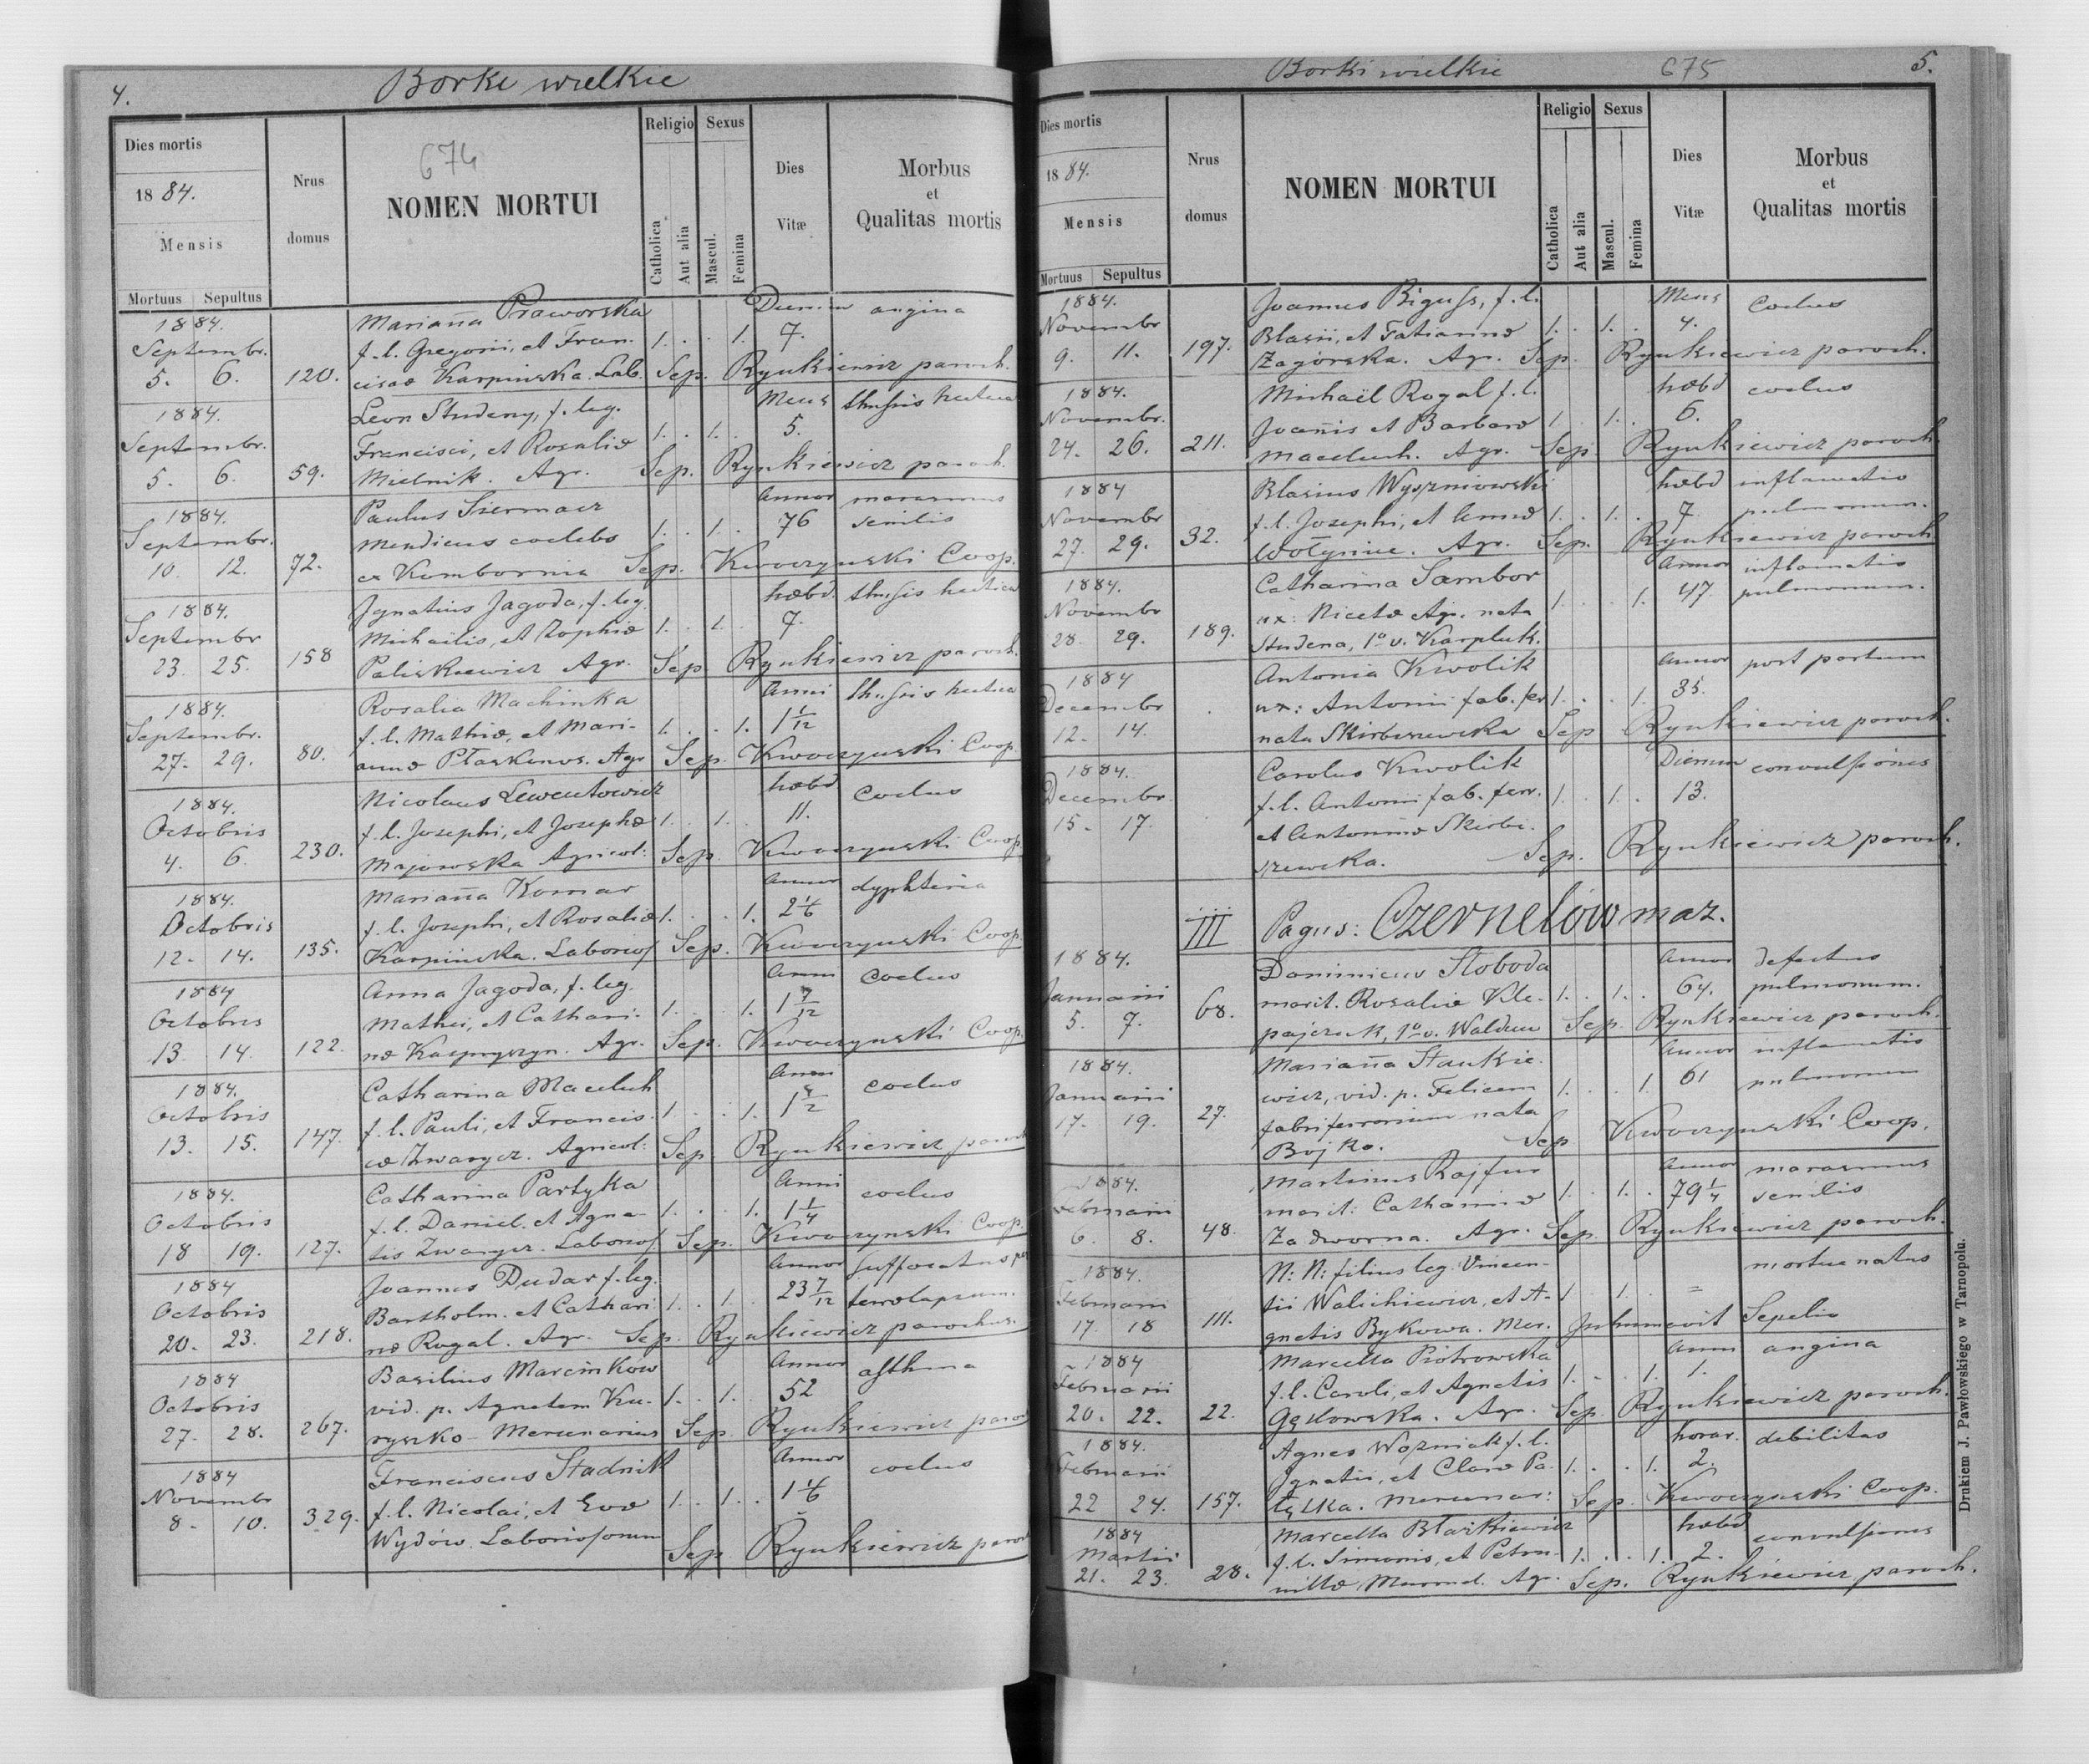 4.
Borki wielkie
Dies mortis
1884.
Mensis
Mortuus Sepultus
Nrus
domus
674
NOMEN MORTUI
Religio
Catholica
Aut alia
Sexus
Mascul.
Femina
Dies
Vitæ
Morbus
et
Qualitas mortis
1884. Marianna Praworska Dierum angina
Septembr. f. l. Gregorii, et Fran- 1. 1. 7.
5. 6. 120. ciscæ Karpinska. Lab. Sep. Rynkiewicz paroch.
1884. Leon Studeny, f. leg. Mens
Septembr. Francisci, et Rosaliæ 1. 1. 5.
5. 6. 59. Mielnik. Agr. Sep. Rynkiewicz paroch.
1884. Paulus Szermacz Annor marasmus
Septembr. Mendicus coelebs 1. 1. 76 senilis
10. 12. 72. ex Kombornia Sep. Kwoczynski Coop.
1884. Ignatius Jagoda, f. leg. hæbd.
Septembr Michaëlis, et Zophiæ 1. 1. 7.
23. 25. 158 Paliszkiewicz Agr. Sep Rynkiewicz paroch.
1884. Rosalia Machinka Anni
Septembr. f. l. Mathiæ, et Mari- 1. 1. 1 1/12
27. 29. 80. annæ Płaskonos. Agr Sep. Kwoczynski Coop.
1884. Nicolaus Lewentowicz hæbd
Octobris f. l. Josephi, et Josephæ 1. 1. 11. coclus
4. 6. 230. Majowska Agricol: Sep. Kwoczynski Coop.
1884. Marianna Komar Annor dyphteria
Octobris f. l. Josephi, et Rosaliæ 1. 1. 2 1/6
12. 14. 135. Karpinska. Laborios Sep. Kwoczynski Coop
1884 Anna Jagoda, f. leg. Anni coclus
Octobris Mathei, et Cathari- 1. 1. 1 7/12
13. 14. 122. næ Kaspryszyn. Agr. Sep. Kwoczynski Coop.
1884. Catharina Maceluch coclus
Octobris f. l. Pauli, et Francis- 1. 1.
13. 15. 147. cæ Zwarycz. Agricol: Sep. Rynkiewicz
1884. Catharina Partyka Anni coclus
Octobris f. l. Daniel. et Agne- 1. 1. 1 1/4
18 19. 127. tis Zwarycz. Laborios Sep. Kwoczynski Coop.
1884 Joannes Dudar f. leg. Annor suffocatus per
Octobris Bartholm. et Cathari 1. 1. 23 7/12 terrælapsum.
20. 23. 218. næ Rogal. Agr. Sep. Rynkiewicz parochus.
1884 Basilius Marcinkow Annor asthma
Octobris vid. p. Agnetem Ku- 1. 1. 52
27. 28. 267. ryszko Mercenarius Sep. Rynkiewicz
1884 Franciscus Stadnik Annor coclus
Novembr f. l. Nicolai, et Evæ 1. 1. 1 1/6
8. 10. 329. Wydów. Laboriosorum
Sep Rynkiewicz
5.
Borki wielkie 675
Dies mortis
1884.
Mensis
Mortuus Sepultus
Nrus
domus
NOMEN MORTUI
Religio
Catholica
Aut alia
Sexus
Mascul.
Femina
Dies
Vitæ
Morbus
et
Qualitas mortis
1884. Joannes Biguss, f. l. Mens coclus
Novembr Blasii, et Tatiannæ 1. 1. 4.
9. 11. 197. Zagórska. Agr. Sep. Rynkiewicz paroch.
1884. Michaël Rogal f. l. hæbd coclus
Novembr. Joannis et Barbaræ 1. 1. 6.
24. 26. 211. Maceluch. Agr. Sep. Rynkiewicz paroch
1884 Blasius Wyszniowski hæbd inflamatio
Novembr f. l. Josephi, et Annæ 1. 1. 7 pulmonum.
27. 29. 32. Wołyniec. Agr. Sep. Rynkiewicz paroch
1884 Catharina Sambor Annor inflamatio
Novembr ux: Nicetæ Agr. nata 1. 1. 47. pulmonum.
28. 29. 189. Studena, 1o v. Karpluk.
1884 Antonia Kwolik Annor post partum
Decembr ux: Antonii fab. fer 1. 1. 35.
12. 14. nata Skirbiszewska Sep Rynkiewicz paroch.
1884. Carolus Kwolik Dierum convulsiones
Decembr. f. l. Antonii fab. ferr. 1. 1. 13.
15. 17. et Antoninæ Skirbi-
szewska. Sep. Rynkiewicz paroch.
III Pagus: Czernelów maz.
1884. Dominicus Słoboda Annor defectus
Januarii marit. Rosaliæ Kle- 1. 1. 64. pulmonum.
5. 7. 68. pajczuk, 1o v. Sep Rynkiewicz paroch.
1884. Marianna Stankie- Annor inflamatio
Januarii wicz, vid. p. Felicem 1. 1. 61 pulmonum
17. 19. 27. fabri ferrarium nata
Bojko. Sep Kwoczynski Coop.
1884. Martinus Rajfur Annor marasmus
Februarii marit: Catharinæ 1. 1. 79 1/4 senilis
6. 8. 48. Zadworna. Agr. Sep Rynkiewicz paroch.
1884. N: N: filius leg. Vincen- mortue natus
Februarii tii Walichiewicz, et A- 1. 1. =
17 18 111. gnetis Bykowa. Mer. Inhumavit Sepelio
1884 Marcella Piotrowska Anni angina
Februarii f. l. Caroli, et Agnetis 1. 1. 1.
20. 22. 22. Agr. Sep Rynkiewicz paroch.
1884. Agnes Wozniak f. l. horar. debilitas
Februarii Ignatii, et Claræ Pa- 1. 1. 2.
22 24. 157. Mercenar: Sep. Kwoczynski Coop.
1884 Marcella Błażkiewicz hæbd convulsiones
Martii f. l. Simonis, et Petro- 1. 1. 2.
21. 23. 28. nillæ Agr. Sep. Rynkiewicz paroch.
Drukiem J. Pawłowskiego w Tarnopolu.